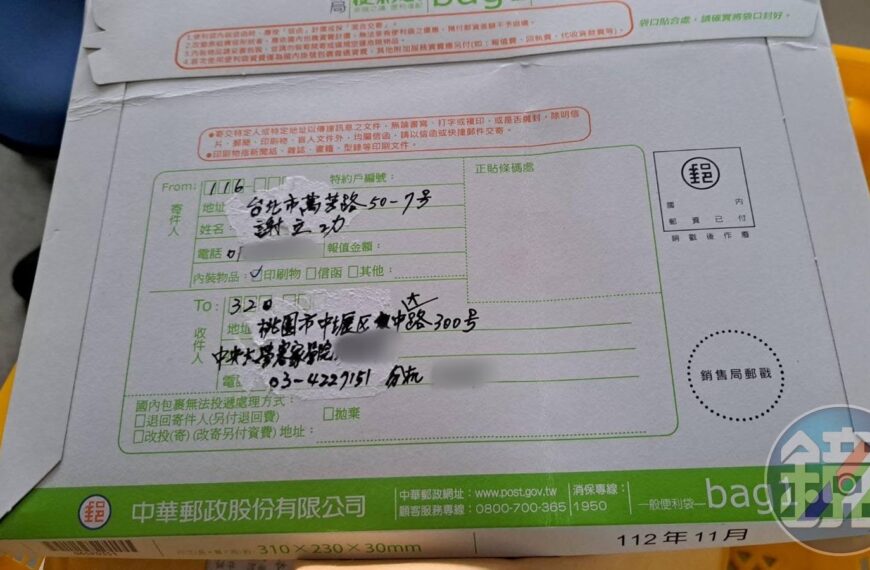 局
bag1
1.便利袋國內包裹
袋口貼合處，請確實將袋口封好。
●寄交特定人或特定地址以傳達訊息之文件，無論書寫、打字或複印，或是否緘封，除明信
片、郵簡、印刷物、盲人文件外，均屬信函，請以信函或快捷郵件交寄。
●印刷物指新聞紙、雜誌、書籍、型錄等印刷文件。
From: 116 特約戶編號：
寄件人
地址 台北市萬芳路50-7号
姓名 謝立功
電話 報值金額：
內裝物品： ✓印刷物 □信函 □其他：
正貼條碼處
郵
國內
郵資已付
銷戳後作廢
To: 320
收件人
地址 桃園市中壢區中大路300号
中央大學客家學院
電話 03-4227151 分机
銷售局郵戳
國內包裹無法投遞處理方式：
□退回寄件人(另付退回費) □拋棄
□改投(寄) (改寄另付資費) 地址：
郵 中華郵政股份有限公司
中華郵政網址：www.post.gov.tw
顧客服務專線：0800-700-365
消保專線：
1950
一般便利袋 bag1
310×230×30mm
112年11月
鏡